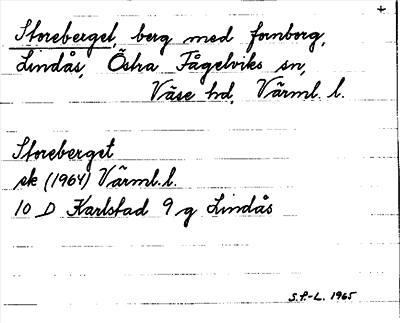 +
Storeberget, berg med fornborg,
Lindås, Östra Fågelviks sn,
Väse hd, Värml. l.
Storeberget
ek (1964) Värml. l.
10 D Karlstad 9 g Lindås
S.P.-L. 1965